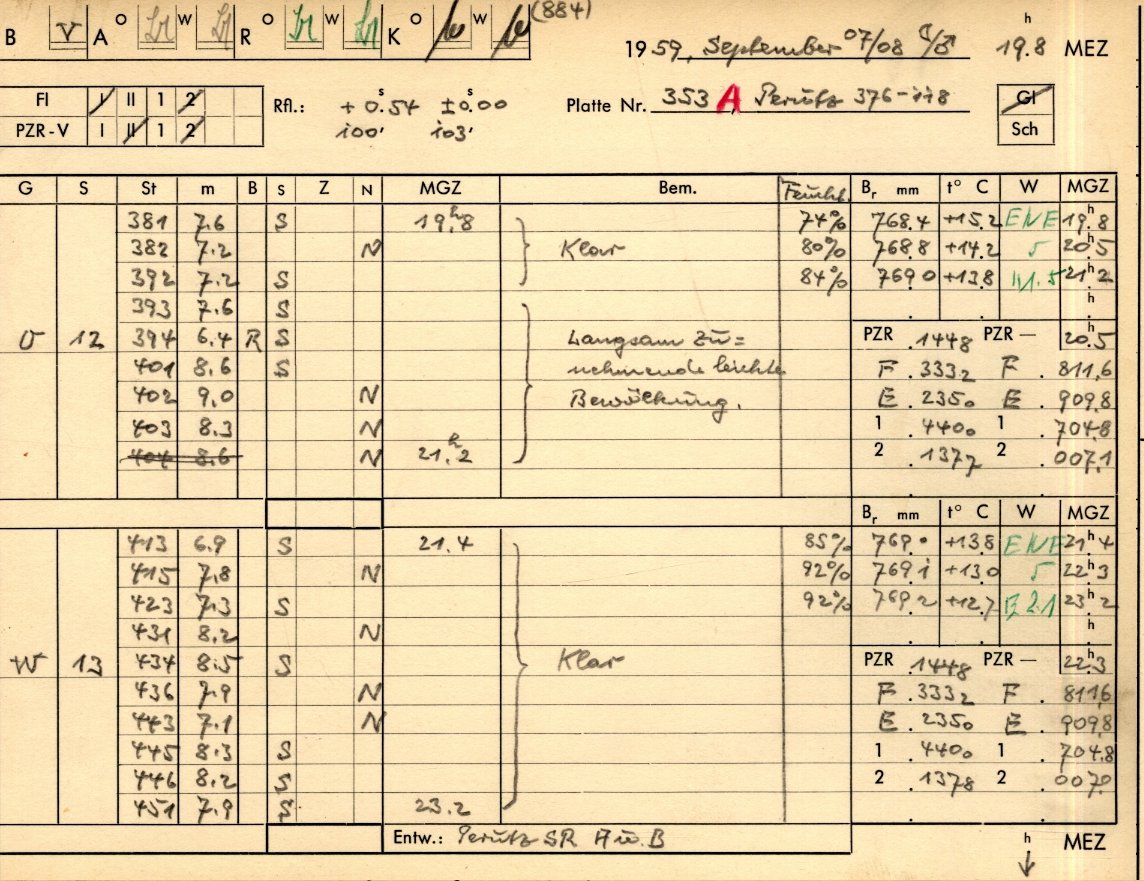 (884)
B V A O W R O W K O W
1959, September 07/08 19.8 h MEZ
FI I II 1 2
PZR-V I II 1 2
Rfl.: +0.54 s ±0.00 s
100' 103'
Platte Nr. 353 A, Perutz 376-118
Gl
Sch
G S St m B S Z N MGZ Bem. Feucht. Br mm t° C W MGZ
381 7.6 S 19h.8 74% 768.4 +15.2 ENE 19h.8
382 7.2 N Klar 80% 768.8 +14.2 5 20h5
392 7.2 S 84% 769.0 +13.8 21h2
393 7.6 S h
O 12 394 6.4 R S Langsam Zu= PZR .1448 PZR — 20h.5
401 8.6 S nehmende leichte F .3332 F . 811.6
402 9.0 N Bewölkung. E .2350 E . 909.8
403 8.3 N 1 .4400 1 . 704.8
404 8.6 N 21h.2 2 .1377 2 . 007.1
Br mm t° C W MGZ
413 6.9 S 21.4 85% 769.0 +13.8 ENE 21h4
415 7.8 N 92% 769.1 +13.0 5 22h3
423 7.3 S 92% 769.2 +12.7 2.1 23h2
431 8.2 N h
W 13 434 8.5 S Klar PZR .1448 PZR — 22h.3
436 7.9 N F .3332 F . 811.6
443 7.1 N E .2350 E . 909.8
445 8.3 S 1 .4400 1 . 704.8
446 8.2 S 2 .1378 2 . 007.0
451 7.9 S 23.2
Entw.: Perutz SR A u. B h MEZ